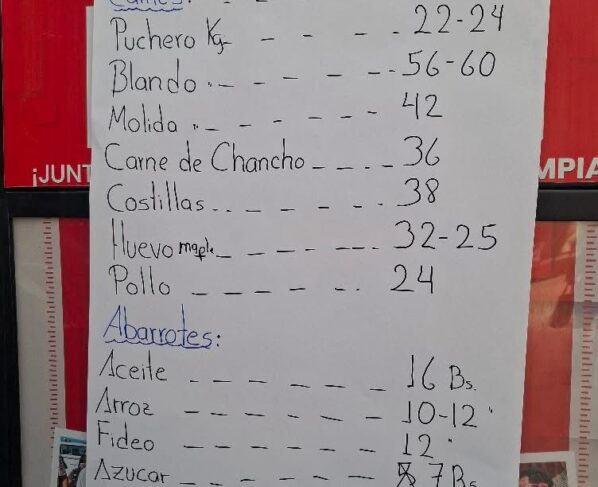 Carnes:
Puchero Kg - - - - 22-24
Blando - - - - - 56-60
Molida - - - - - - 42
Carne de Chancho - - - - 36
Costillas - - - - - - 38
Huevo maple - - - - - - 32-25
Pollo - - - - - - 24
Abarrotes:
Aceite - - - - - - - 16 Bs.
Arroz - - - - - - - 10-12 "
Fideo - - - - - - - 12 "
Azucar - - - - - - 7 Bs.
¡JUNT
MPIA